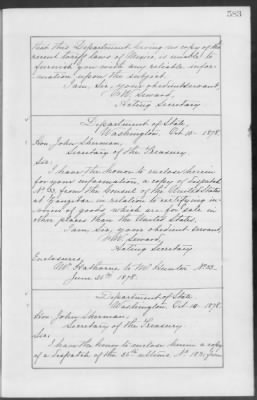 583
that this Department having no copy of the
recent tariff laws of Mexico, is unable to
furnish you with any reliable infor-
mation upon the subject.
I am, Sir, your obedient servant,
F. W. Seward,
Acting Secretary
Department of State,
Washington, Oct. 10 1878.
Hon John Sherman,
Secretary of the Treasury.
Sir:
I have the honor to enclose herein
for your information, a copy of dispatch
No 33, from the Consul of the United States
at Zanzibar in relation to certifying in-
voices of goods which are for sale in
other places than the United States.
I am, Sir, your obedient servant,
F. W. Seward,
Acting Secretary
Enclosures,
Mr Hathorne to Mr Hunter No 33.
June 20th 1878.
Department of State
Washington, Oct. 10 1878.
Hon John Sherman,
Secretary of the Treasury.
Sir:
I have the honor to enclose herein a copy
of a despatch of the 25th ultimo, No 183, from